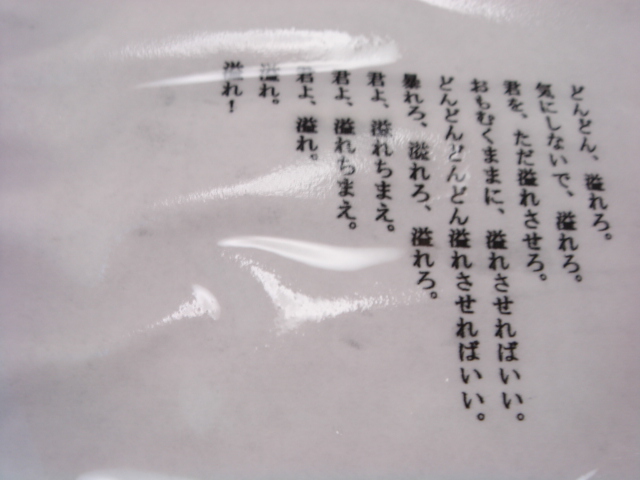 どんどん、溢れろ。
気にしないで、溢れろ。
君を、ただ溢れさせろ。
おもむくままに、溢れさせればいい。
どんどんどんどん溢れさせればいい。
暴れろ、溢れろ、溢れろ。
君よ、溢れちまえ。
君よ、溢れちまえ。
君よ、溢れ。
溢れ。
溢れ！